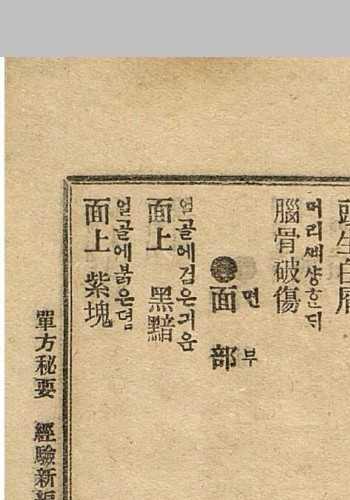 頭生白屑
머리쎄샹한듸
腦骨破傷
면부
●面部
얼골에검은긔운
面上 黑黯
얼골에붉은뎜
面上 紫塊
單方秘要 經驗新編